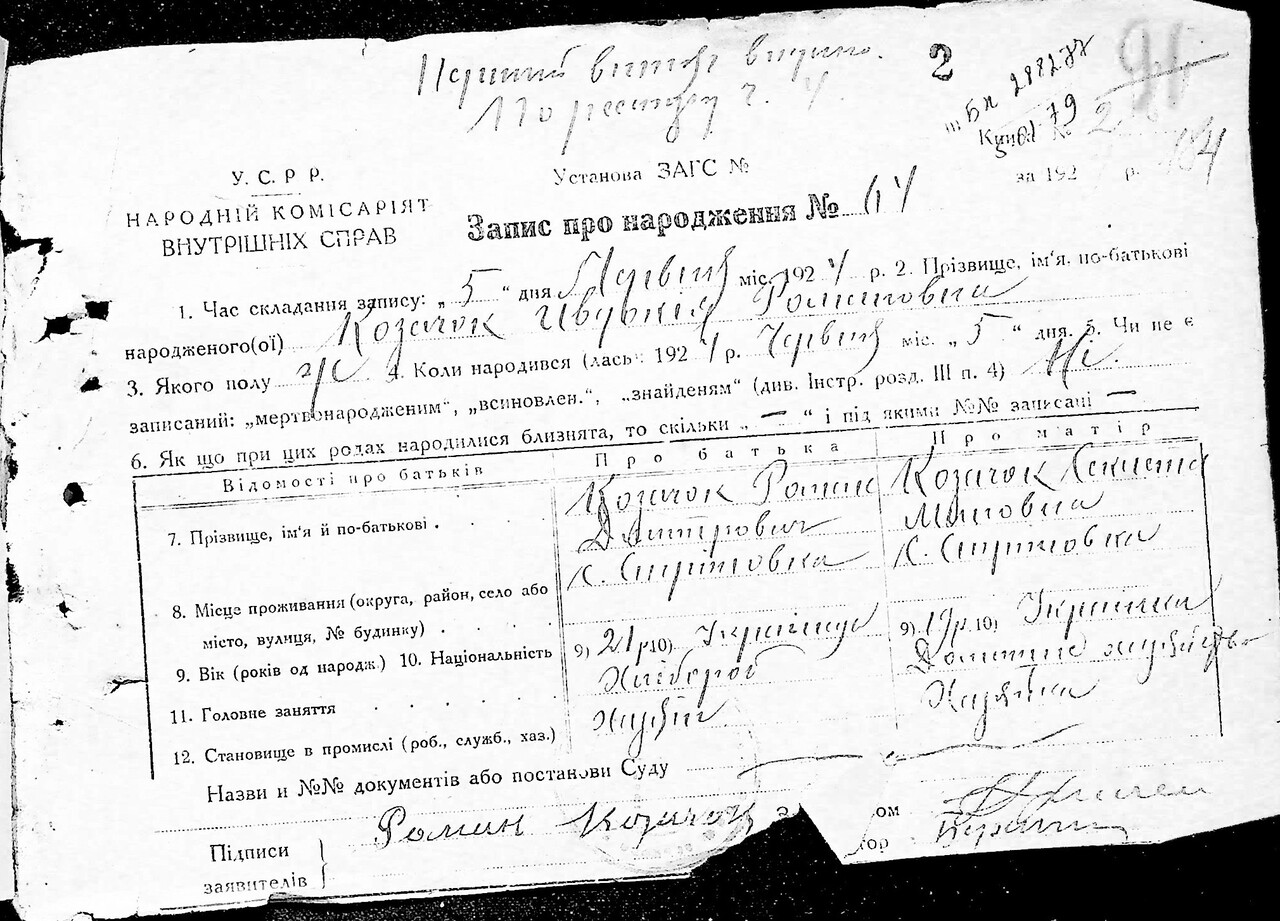 Перший витяг видано.
По реєстру ч. 4.
2
Книга №
У. С. Р. Р.
НАРОДНІЙ КОМІСАРІЯТ
ВНУТРІШНІХ СПРАВ
Установа ЗАГС №
за 192 р.
Запис про народження № 64
1. Час складання запису: „ 5 “ дня Червня міс. 1924 р. 2. Прізвище, ім'я, по-батькові
народженого(ої) Козачок Романовна
3. Якого полу ж 4. Коли народився (лась) 1924 р. Червня міс. „ 5 “ дня. 5. Чи не є
записаний: „мертвонародженим“, „всиновлен.“, „знайденям“ (див. Інстр. розд. III п. 4) Ні
6. Як що при цих родах народилися близнята, то скільки „ — “ і під якими №№ записані —
Відомості про батьків Про батька Про матір
7. Прізвище, ім'я й по-батькові . Козачок Роман Дмитрович Козачок
8. Місце проживання (округа, район, село або
місто, вулиця, № будинку) с. с.
9. Вік (років од народж.) 10. Національність 9) 21 р. 10) Українець 9) 19 р. 10) Українка
11. Головне заняття Хлібороб Домашне
12. Становище в промислі (роб., служб., хаз.) Хазяїн Хазяйка
Назви и №№ документів або постанови Суду
Підписи
заявителів
Роман Козачок
ом
тор